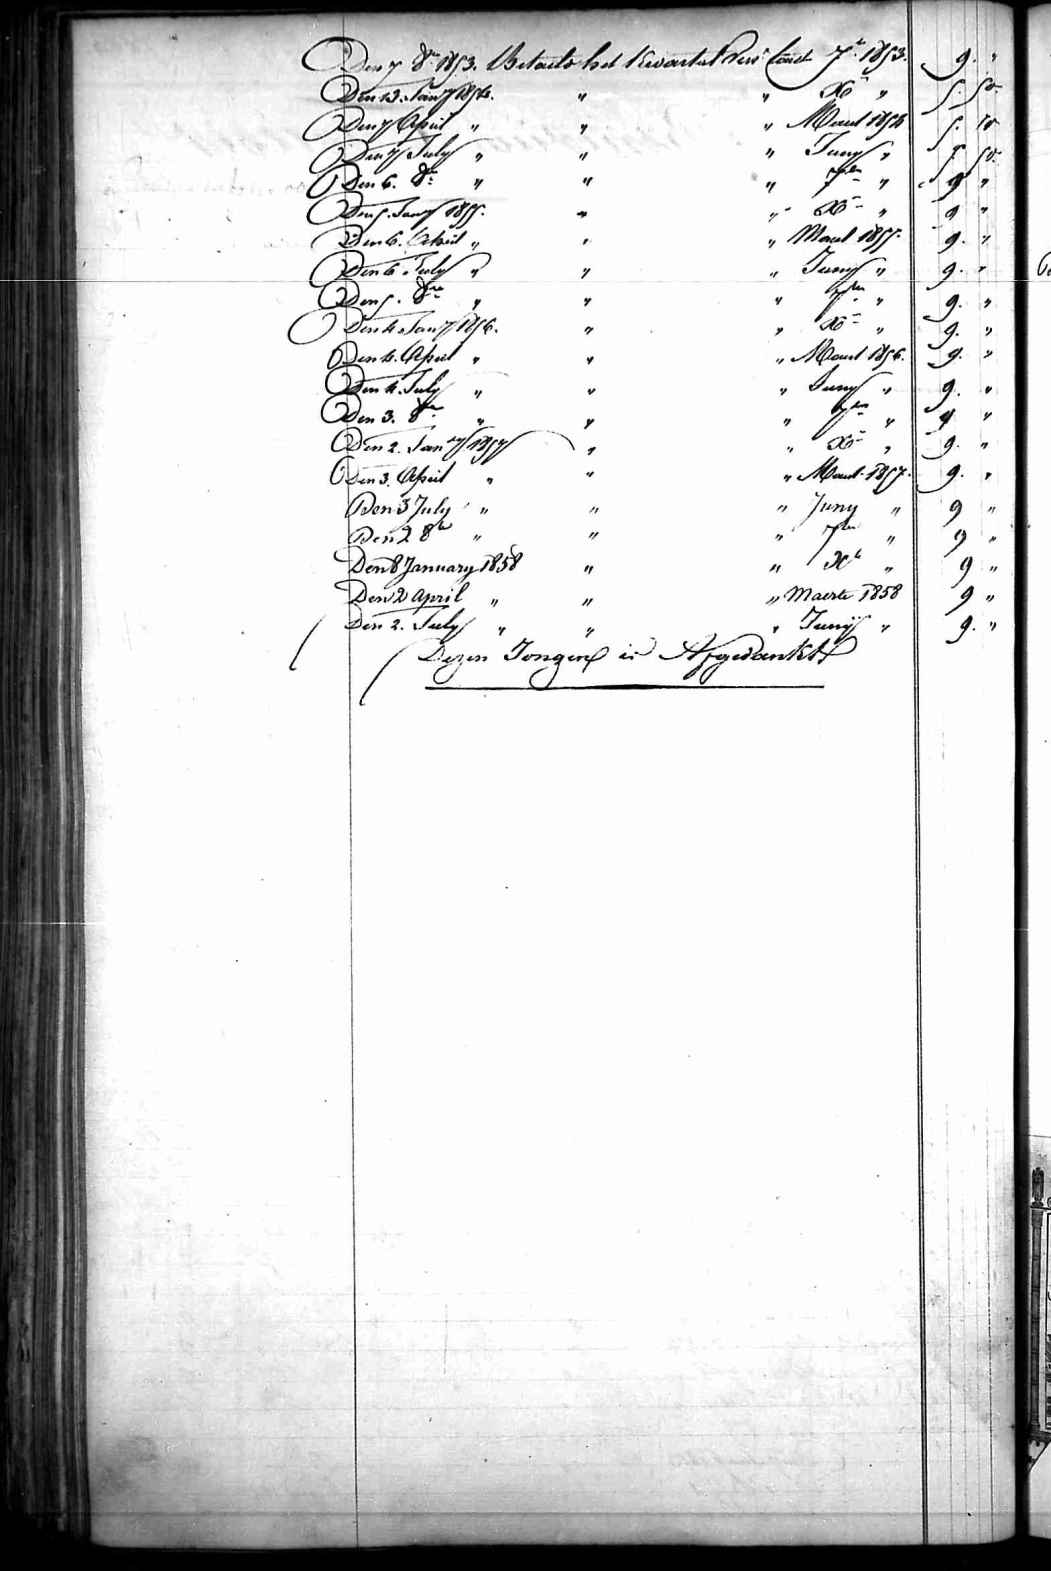 Den 7 8br 1853. Betaald het Kwartal Pens 7br 1853. 9. "
Den 12. Jany 1854. " " Xr " 5. 50
Den 7 April " " " Maart 1854 5. 50
Den 7 July " " " Juny " 5. 50
Den 6. 8br " " " 7ber " 9 "
Den 5. Jany 1855. " " Xr " 9 "
Den 6. April " " " Maart 1855. 9. "
Den 6 July " " " Juny " 9. "
Den 5. 8br " " " 7ber " 9. "
Den 4. Jany 1856. " " Xr " 9. "
Den 4. April " " " Maart 1856. 9. "
Den 4. July " " " Juny " 9. "
Den 3. 8br " " " 7ber " 9 "
Den 2. Jany 1857 " " Xr " 9. "
Den 3. April " " " Maart 1857. 9. "
Den 3 July " " " Juny " 9 "
Den 2 8br " " " 7ber " 9 "
Den 8 January 1858 " " Xr " 9 "
Den 2 April " " " Maerte 1858 9 "
Den 2. July " " " Junij " 9. "
Dezen Jongen is Afgedankt